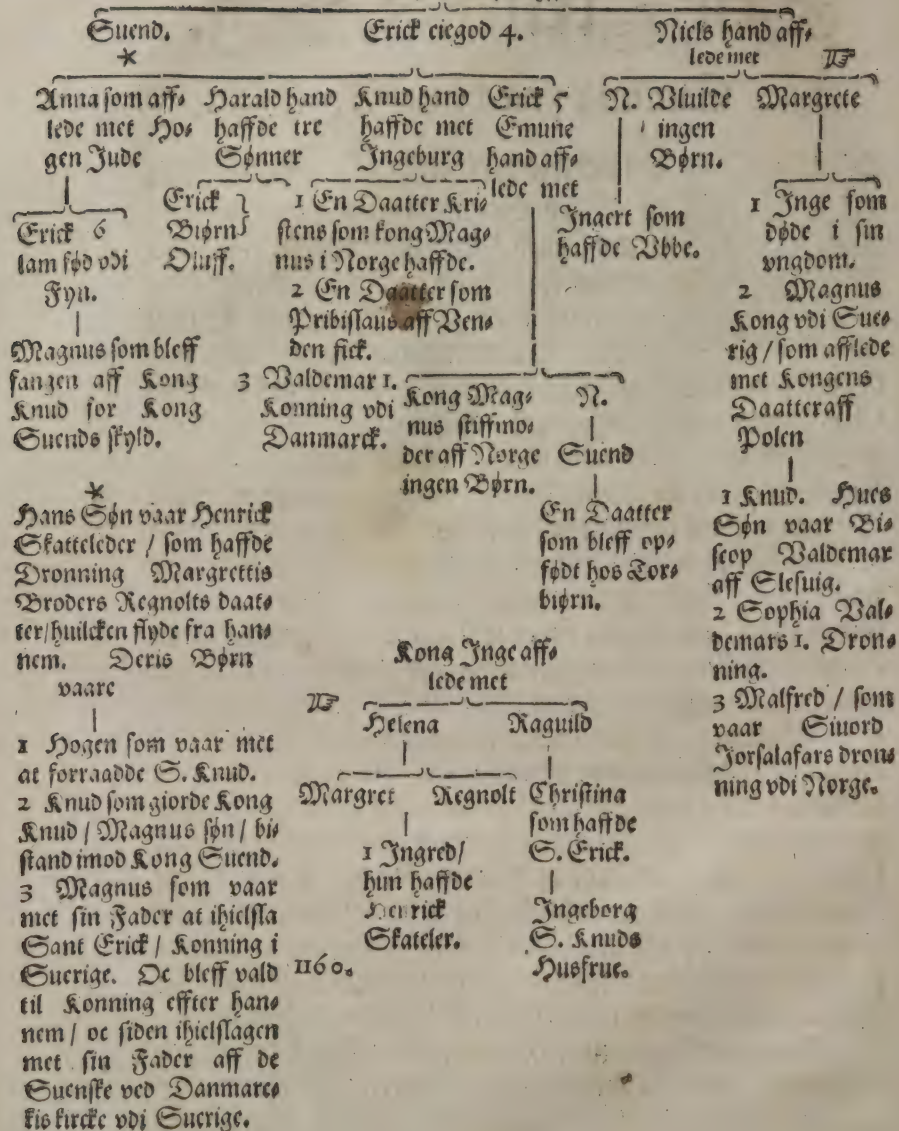 Suend.
Erick eiegod 4.
Niels hand aff⸗
lede met
Anna som aff⸗
lede met Ho⸗
gen Jude
Harald hand
haffde tre
Sønner
Knud hand
haffde met
Ingeburg
Erick 5
Emune
hand aff⸗
lede met
N. Vluilde
ingen
Børn.
Margrete
Erick 6
lam fød vdi
Fyn.
Erick
Biørn
Oluff.
1 En Daatter Kri⸗
stens som kong Mag⸗
nus i Norge haffde.
2 En Daatter som
Pribislaus aff Ven⸗
den fick.
3 Valdemar 1.
Konning vdi
Danmarck.
Ingert som
haffde Vbbe.
1 Inge som
døde i sin
vngdom.
2 Magnus
Kong vdi Sue⸗
rig / som afflede
met Kongens
Daatter aff
Polen
Magnus som bleff
fangen aff Kong
Knud for Kong
Suends skyld.
Kong Mag⸗
nus stiffmo⸗
der aff Norge
ingen Børn.
N.
Suend
En Daatter
som bleff op⸗
født hos Tor⸗
biørn.
1 Knud. Hues
Søn vaar Bi⸗
scop Valdemar
aff Slesuig.
2 Sophia Val⸗
demars 1. Dron⸗
ning.
3 Malfred / som
vaar Siuord
Jorsalafars dron⸗
ning vdi Norge.
Hans Søn vaar Henrick
Skatteleder / som haffde
Dronning Margrettis
Broders Regnolts daat⸗
ter/huilcken flyde fra han⸗
nem. Deris Børn
vaare
1 Hogen som vaar met
at forraadde S. Knud.
2 Knud som giorde Kong
Knud / Magnus søn / bi⸗
stand imod Kong Suend.
3 Magnus som vaar
met sin Fader at ihielsla
Sant Erick / Konning i
Suerige. Oc bleff vald
til Konning effter han⸗
nem / oc siden ihielslagen
met sin Fader aff de
Suenske ved Danmarc⸗
kis kircke vdi Suerige.
Kong Inge aff⸗
lede met
Helena
Raguild
Margret
Regnolt
Christina
som haffde
S. Erick.
1 Ingred/
hun haffde
Henrick
Skateler.
Ingeborg
S. Knuds
Husfrue.
1160.